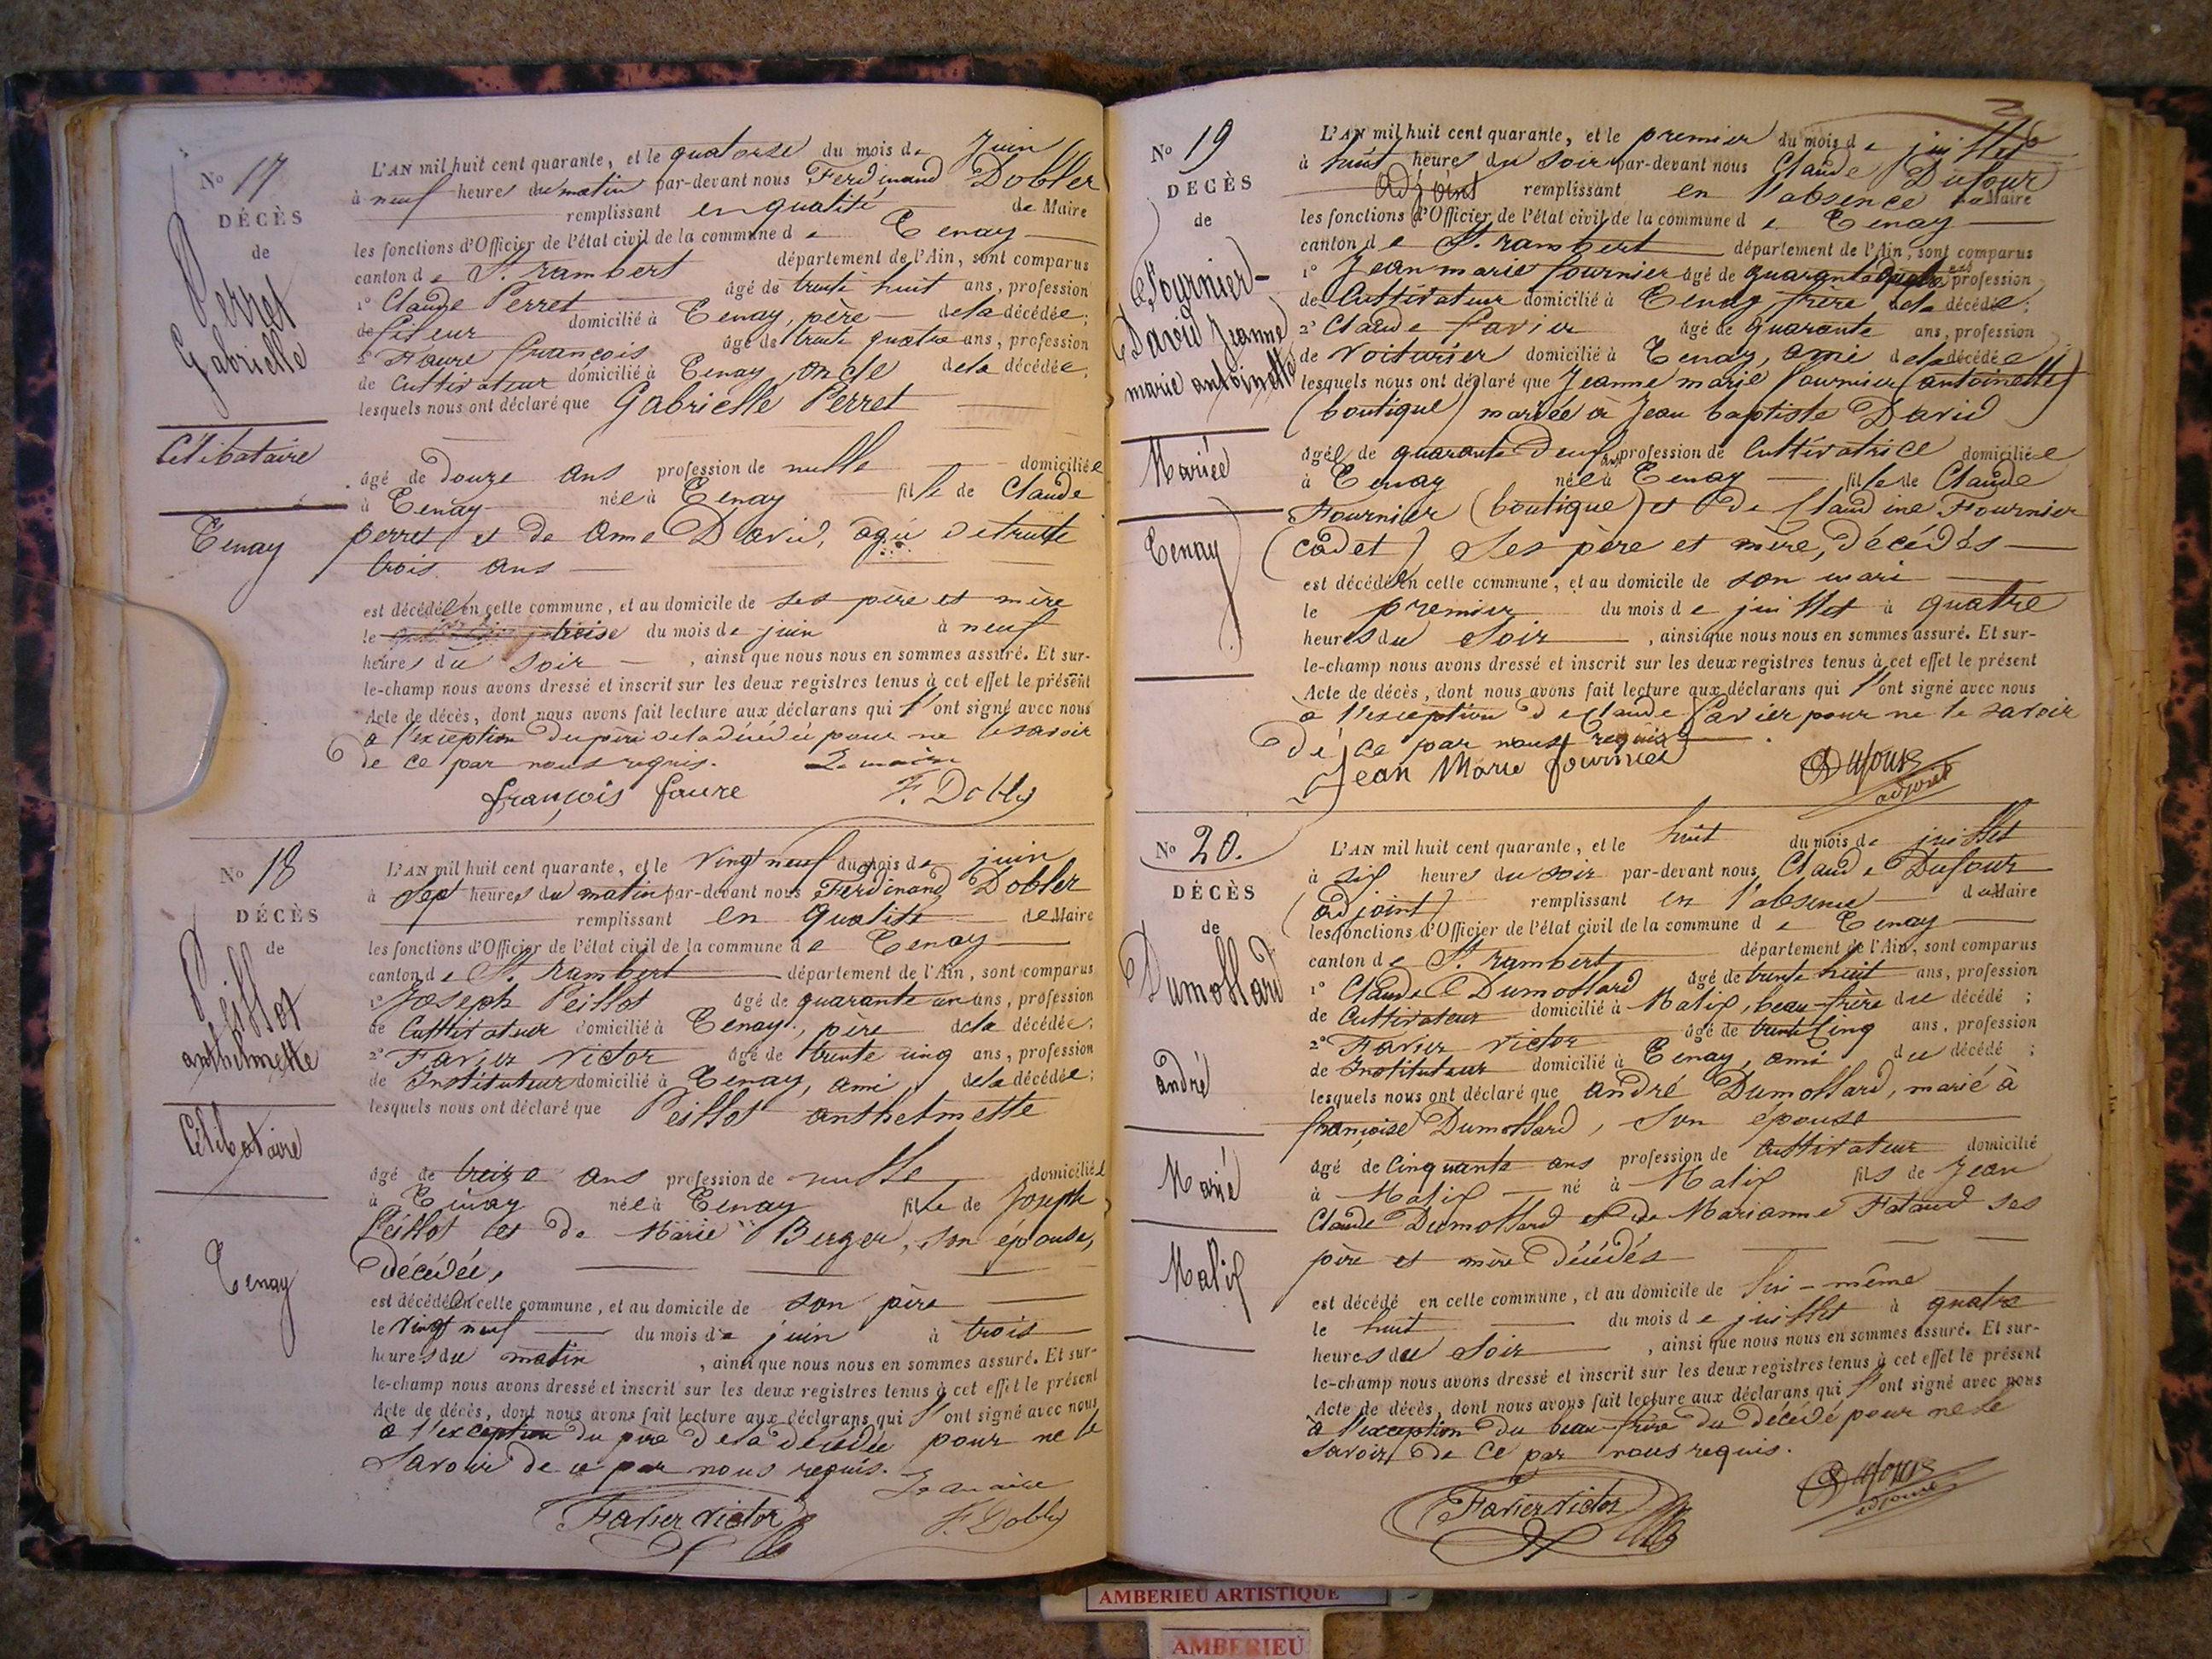 No 17
DÉCÈS
de
Perret
Gabrielle
Célibataire
Tenay
L'AN mil huit cent quarante, et le quatorze du mois de Juin
à neuf heures du matin par-devant nous Ferdinand Dobler
remplissant en qualité de Maire
les fonctions d'Officier de l'état civil de la commune de Tenay
canton de St. rambert département de l'Ain, sont comparus
1° Claude Perret âgé de trente huit ans, profession
de domicilié à Tenay, père de la décédée;
2° Faure François âgé de trente quatre ans, profession
de Cultivateur domicilié à Tenay, oncle de la décédée,
lesquels nous ont déclaré que Gabrielle Perret
âgé de douze ans profession de nulle domiciliée
à Tenay née à Tenay fille de Claude
perret et de anne David, agée de trente
trois ans
est décédée en celle commune, et au domicile de ses père et mère
le treise du mois de juin à neuf
heures du soir, ainsi que nous nous en sommes assuré. Et sur-
le-champ nous avons dressé et inscrit sur les deux registres tenus à cet effet le présent
Acte de décès, dont nous avons fait lecture aux déclarans qui l'ont signé avec nous
a l'exception du père de la décédée pour ne le savoir
de ce par nous requis. Le maire
françois faure F. Dobler
No 18
DÉCÈS
de
Peillot
anthelmette
Célibataire
Tenay
L'AN mil huit cent quarante, et le vingt neuf du mois de juin
à sept heures du matin par-devant nous Ferdinand Dobler
remplissant en qualité de Maire
les fonctions d'Officier de l'état civil de la commune de Tenay
canton de St. rambert département de l'Ain, sont comparus
1° Joseph Peillot âgé de quarante un ans, profession
de Cultivateur domicilié à Tenay, père de la décédée;
2° Favier victor âgé de trente cinq ans, profession
de Instituteur domicilié à Tenay, ami de la décédée;
lesquels nous ont déclaré que Peillot anthelmette
âgé de treize ans profession de nulle domiciliée
à Tenay née à Tenay fille de Joseph
Peillot et de Marie Berger, son épouse,
décédée,
est décédée en celle commune, et au domicile de son père
le vingt neuf du mois de juin à trois
heures du matin, ainsi que nous nous en sommes assuré. Et sur-
le-champ nous avons dressé et inscrit sur les deux registres tenus à cet effet le présent
Acte de décès, dont nous avons fait lecture aux déclarans qui l'ont signé avec nous
a l'exception du père de la décédée pour ne le
savoir de ce par nous requis. Le maire
Favier victor F. Dobler
No 19
DÉCÈS
de
Fournier-
David Jeanne
marie antoinette
Mariée
Tenay
L'AN mil huit cent quarante, et le premier du mois de juillet
à huit heures du soir par-devant nous Claude Dufour
adjoint remplissant en l'absence du Maire
les fonctions d'Officier de l'état civil de la commune de Tenay
canton de St. rambert département de l'Ain, sont comparus
1° Jean marie fournier âgé de quarante quatre ans profession
de Cultivateur domicilié à Tenay, frère de la décédée;
2° Claude favier âgé de quarante ans, profession
de voiturier domicilié à Tenay, ami de la décédée;
lesquels nous ont déclaré que Jeanne marie fournier (antoinette)
(boutique) mariée à Jean baptiste David
âgée de quarante deux ans profession de Cultivatrice domiciliée
à Tenay née à Tenay fille de Claude
Fournier (boutique) et de Claudine Fournier
(cadet) ses père et mère, décédés
est décédée en celle commune, et au domicile de son mari
le premier du mois de juillet à quatre
heures du soir, ainsi que nous nous en sommes assuré. Et sur-
le-champ nous avons dressé et inscrit sur les deux registres tenus à cet effet le présent
Acte de décès, dont nous avons fait lecture aux déclarans qui l'ont signé avec nous
a l'exception de Claude favier pour ne le savoir
de ce par nous requis.
Jean Marie fournier Dufour
adjoint
No 20.
DÉCÈS
de
Dumollard
andré
Marié
Malix
L'AN mil huit cent quarante, et le huit du mois de juillet
à six heures du soir par-devant nous Claude Dufour
(adjoint) remplissant en l'absence du Maire
les fonctions d'Officier de l'état civil de la commune de Tenay
canton de St. rambert département de l'Ain, sont comparus
1° Claude Dumollard âgé de trente huit ans, profession
de Cultivateur domicilié à Malix, beau-frère du décédé;
2° Favier victor âgé de trente cinq ans, profession
de Instituteur domicilié à Tenay, ami du décédé;
lesquels nous ont déclaré que andré Dumollard, marié à
françoise Dumollard, son épouse
âgé de Cinquante ans profession de Cultivateur domicilié
à Malix né à Malix fils de Jean
Claude Dumollard et de Marianne ses
père et mère décédés
est décédé en celle commune, et au domicile de lui-même
le huit du mois de juillet à quatre
heures du soir, ainsi que nous nous en sommes assuré. Et sur-
le-champ nous avons dressé et inscrit sur les deux registres tenus à cet effet le présent
Acte de décès, dont nous avons fait lecture aux déclarans qui l'ont signé avec nous
à l'exception du beau-frère du décédé pour ne le
savoir de ce par nous requis.
Favier victor Dufour
adjoint
AMBERIEU ARTISTIQUE
AMBERIEU